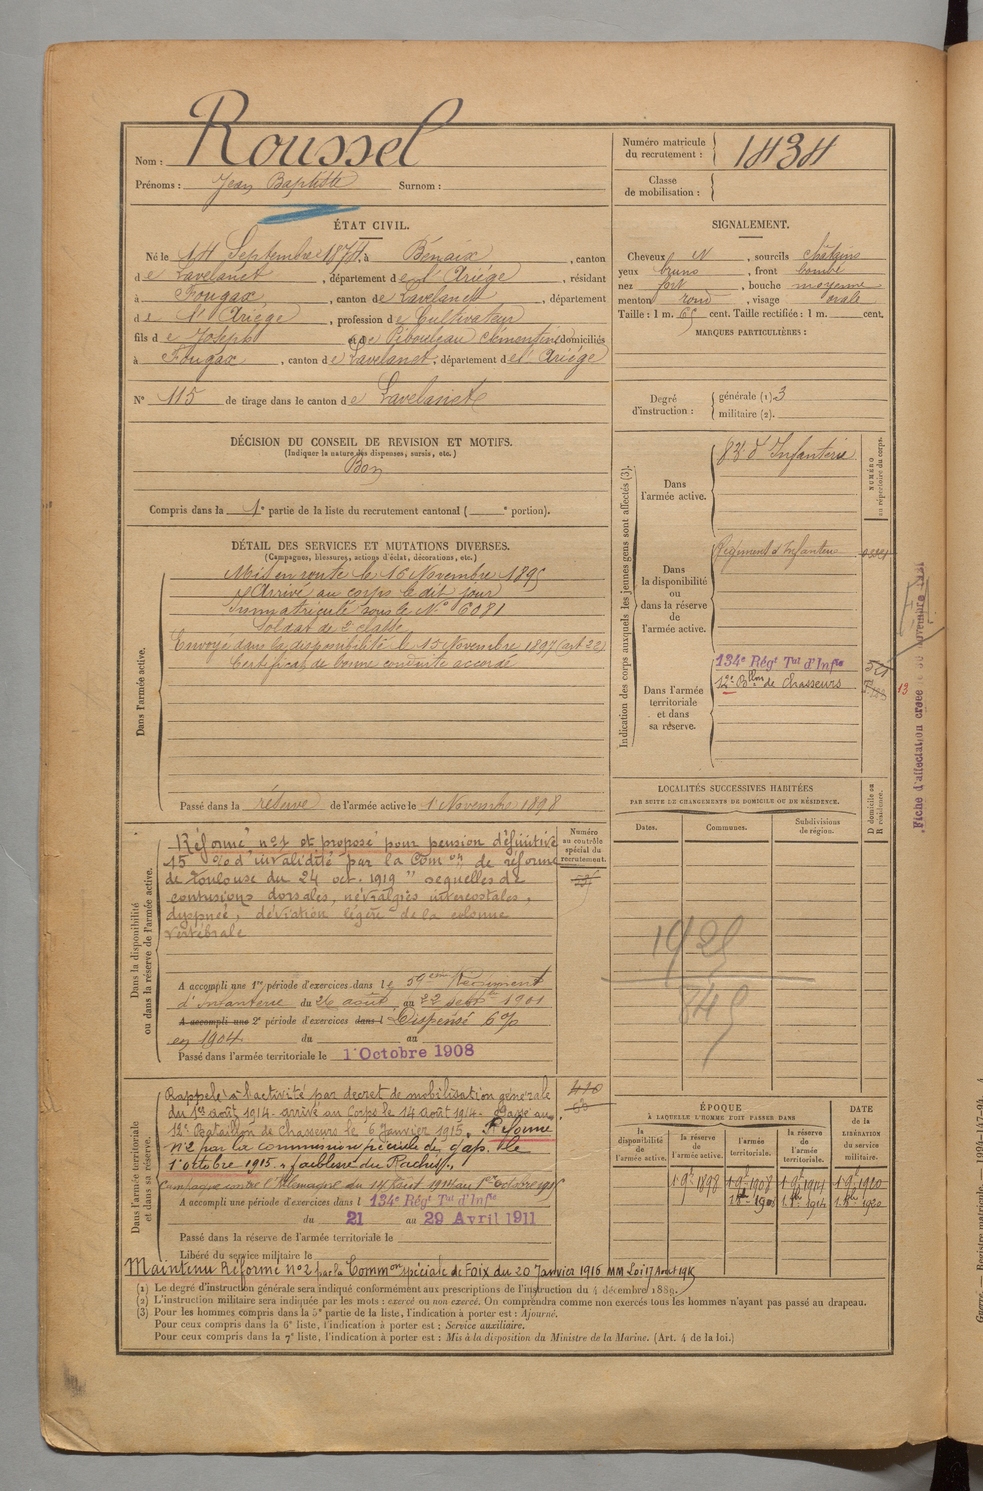 Nom : Roussel
Prénoms : Jean Baptiste Surnom :
Numéro matricule
du recrutement : 1434
Classe
de mobilisation :
ÉTAT CIVIL.
Né le 14 Septembre 1874, à Bénaix, canton
de Lavelanet, département de l'Ariège, résidant
à Fougax, canton de Lavelanet, département
de l'Ariège, profession de Cultivateur
fils de Joseph et de Clémentine domiciliés
à Fougax, canton de Lavelanet, département de l'Ariège
N° 115 de tirage dans le canton de Lavelanet
SIGNALEMENT.
Cheveux N, sourcils châtains
yeux bruns, front bombé
nez fort, bouche moyenne
menton rond, visage ovale
Taille : 1 m. 65 cent. Taille rectifiée : 1 m. cent.
MARQUES PARTICULIÈRES :
Degré
d'instruction :
générale (1) 3
militaire (2).
DÉCISION DU CONSEIL DE REVISION ET MOTIFS.
(Indiquer la nature des dispenses, sursis, etc.)
Bon
Compris dans la 1e partie de la liste du recrutement cantonal ( e portion).
DÉTAIL DES SERVICES ET MUTATIONS DIVERSES.
(Campagnes, blessures, actions d'éclat, décorations, etc.)
Dans l'armée active.
Mis en route le 16 Novembre 1895
Arrivé au corps le dit jour
Immatriculé sous le N° 6081
Soldat de 2e classe
Envoyé dans la disponibilité le 15 Novembre 1897 (art 22)
Certificat de bonne conduite accordé
Passé dans la réserve de l'armée active le 1 Novembre 1898
Indication des corps auxquels les jeunes gens sont affectés (3).
NUMÉRO
au répertoire du corps.
Dans
l'armée active.
83e d'Infanterie
Dans
la disponibilité
ou
dans la réserve
de
l'armée active.
Régiment d'Infanterie
Dans l'armée
territoriale
et dans
sa réserve.
134e Régt Tal d'Infie
12e Blon de Chasseurs
13
Fiche d'affectation créée le 30 novembre 1921
LOCALITÉS SUCCESSIVES HABITÉES
PAR SUITE DE CHANGEMENTS DE DOMICILE OU DE RÉSIDENCE.
Dates.
Communes.
Subdivisions
de région.
D domicile ou
R résidence.
Dans la disponibilité
ou dans la réserve de l'armée active.
Numéro
au contrôle
spécial du
recrutement.
Réformé n°1 et proposé pour pension définitive
15 % d'invalidité par la Comon de réforme
de Toulouse du 24 oct. 1919 " séquelles de
contusions dorsales, névralgies intercostales,
dyspnée, déviation légère de la colonne
vertébrale
A accompli une 1re période d'exercices dans le 59ème Régiment
d'Infanterie du 26 août au 22 sept 1901
A accompli une 2e période d'exercices dans l Dispensé 6%
en 1904 du au
Passé dans l'armée territoriale le 1 Octobre 1908
Dans l'armée territoriale
et dans sa réserve.
Rappelé à l'activité par décret de mobilisation générale
du 1er août 1914 - arrivé au Corps le 14 août 1914 - Passé au
12e Bataillon de Chasseurs le 6 janvier 1915. Réformé
n°2 par la commission spéciale de Gap le
1 octobre 1915. " faiblesse du Rachis "
Campagne contre l'Allemagne du 14 août 1914 au 1er octobre 1915
A accompli une période d'exercices dans l 134e Régt Tal d'Infie
du 21 au 29 Avril 1911
Passé dans la réserve de l'armée territoriale le
Libéré du service militaire le
Maintenu Réformé n°2 par la Common spéciale de Foix du 20 Janvier 1916 MM Loi 17 Août 1915
ÉPOQUE
À LAQUELLE L'HOMME DOIT PASSER DANS
la
disponibilité
de
l'armée active.
la réserve
de
l'armée active.
l'armée
territoriale.
la réserve
de
l'armée
territoriale.
DATE
de la
LIBÉRATION
du service
militaire.
(1) Le degré d'instruction générale sera indiqué conformément aux prescriptions de l'instruction du 4 décembre 1889.
(2) L'instruction militaire sera indiquée par les mots : exercé ou non exercé. On comprendra comme non exercés tous les hommes n'ayant pas passé au drapeau.
(3) Pour les hommes compris dans la 5e partie de la liste, l'indication à porter est : Ajourné.
Pour ceux compris dans la 6e liste, l'indication à porter est : Service auxiliaire.
Pour ceux compris dans la 7e liste, l'indication à porter est : Mis à la disposition du Ministre de la Marine. (Art. 4 de la loi.)